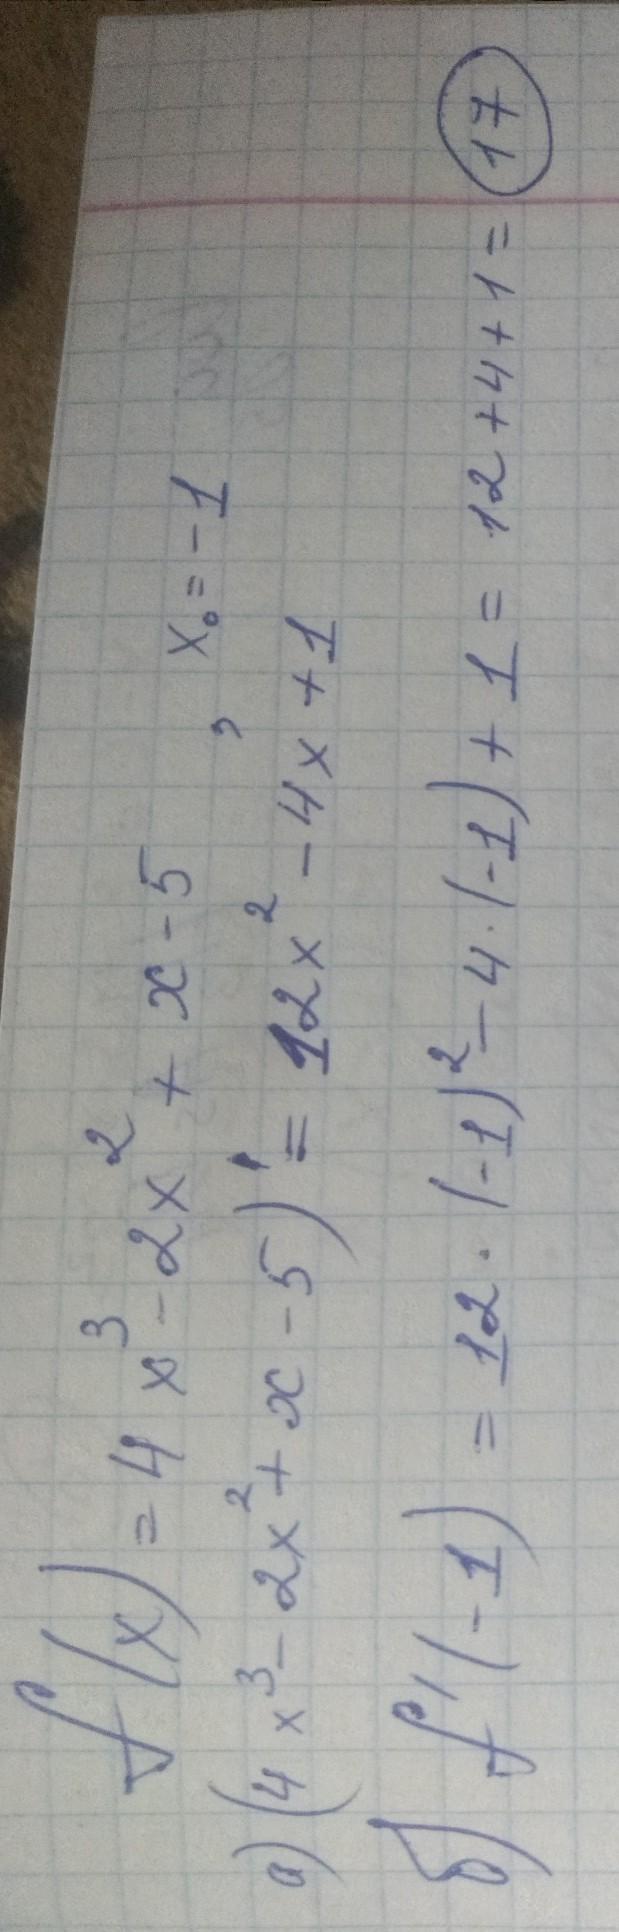 f(x) = 4x³ - 2x² + x - 5, x₀ = -1
а) (4x³ - 2x² + x - 5)' = 12x² - 4x + 1
б) f'(-1) = 12 · (-1)² - 4 · (-1) + 1 = 12 + 4 + 1 = 17